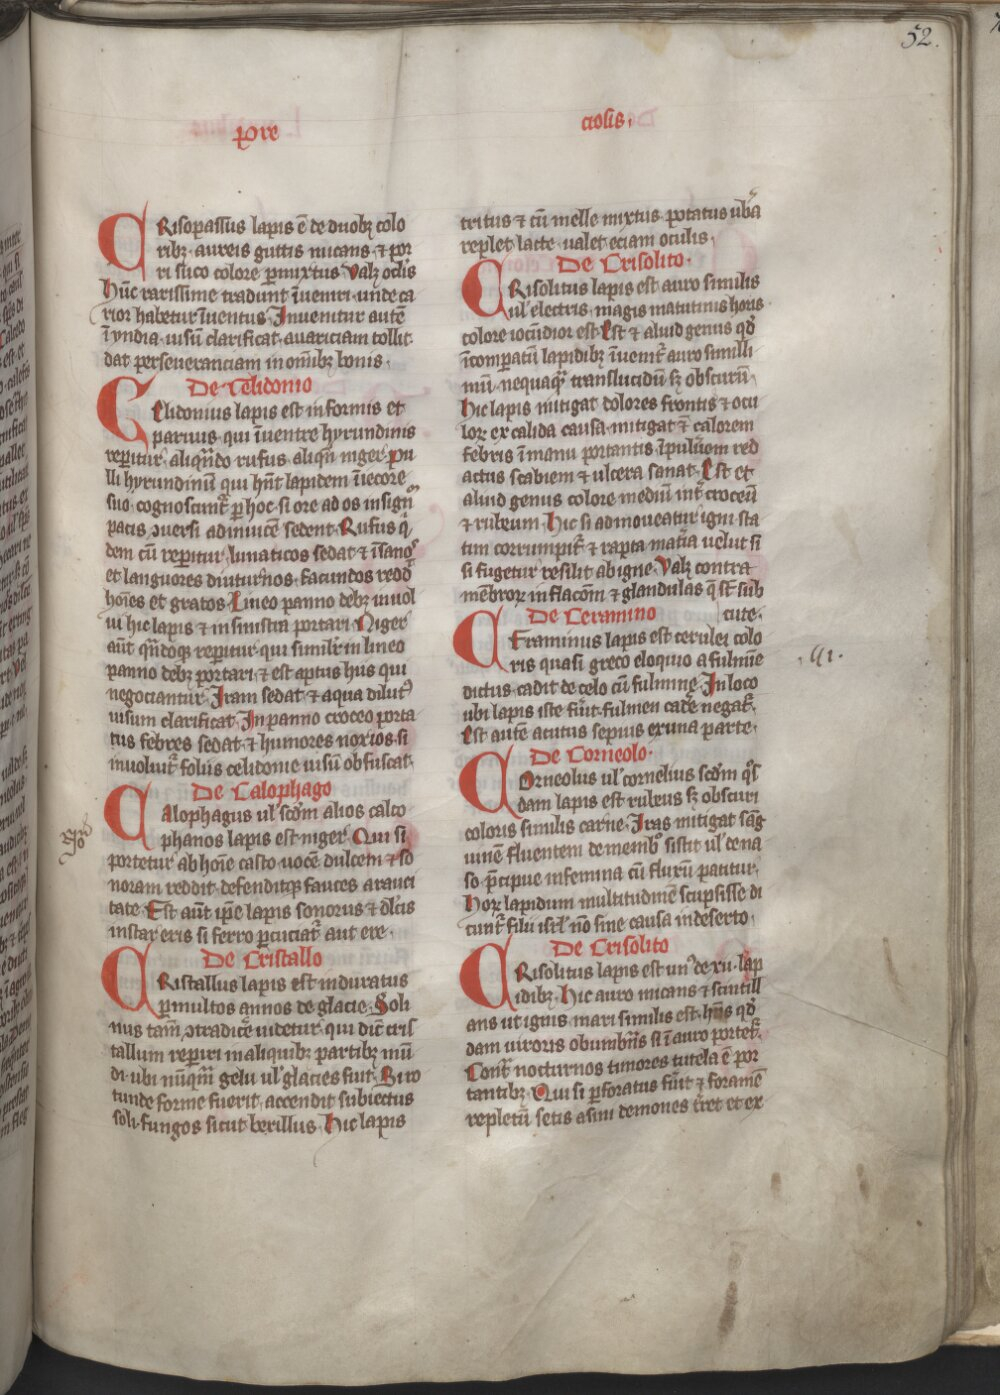 52.
p̄re
ciosis.
CRisopassus lapis ē de duobꝫ colo
ribꝫ. aureis guttis micans. ⁊ por
ri suco colore ꝑmixtus Valꝫ oclis
Hūc rarissime tradunt īueniri. unde ca
rior habetur īuentus. Inuenitur autē
ī yndia. uisū clarificat. auariciam tollit.
dat perseueranciam in om̄ibꝫ bonis.
De Celidonio
CElidonius lapis est informis et
paruus. qui īuentre hyrundinis
reperitur. aliqn̄do rufus. aliqn̄ niger. pu
lli hyrundinū qui hn̄t lapidem ī iecore
suo. cognoscunt᷑ ꝑ hoc. si ore ad os insignū
pacis ↄuersi adinuicē sedent. Rufus q̇
dem cū reperitur. lunaticos sedat ⁊ īsanos
et languores diuturnos. facundos redd
hoīes et gratos. Lineo panno debꝫ inuol
ui hic lapis ⁊ in sinistra portari. Niger
aūt qn̄doqꝫ reperitur. qui similr̄ in lineo
panno debꝫ portari. ⁊ est aptus hus qui
negociantur. Iram sedat. ⁊ aqua dilutꝰ
uisum clarificat. In panno croceo porta
tus febres sedat. ⁊ humores noxios. si
inuoluit᷑ foliis celidonie uisū obfuscat.
De Calophago
CAlophagus ul' scdm alios calco
phanos lapis est niger. Qui si
portetur ab hoīe casto uocē dulcem ⁊ so
noram reddit. defenditqꝫ fauces a rauci
tate. Est aūt ip̄e lapis sonorus ⁊ dulcis
instar eris si ferro ꝑcuciat᷑ aut ere.
De Cristallo
CRistallus lapis est induratus
ꝑ multos annos de glacie. Soli
nus tam̄ ↄtradicē uidetur. qui dic̄ cris
tallum reperiri in aliquibꝫ partibꝫ mū
di. ubi nūqm̄ gelu ul' glacies fuit. Si ro
tunde forme fuerit. accendit subiectus
soli. fungos sicut berillus. Hic lapis
tritus ⁊ cū melle mixtus potatus ub̄a
replet lacte. ualet eciam oculis.
De Crisolito.
CRisolitus lapis est auro similis
ul' electris. magis matutinis horis
colore iocūdior est. Est ⁊ aliud genus qd̄
īcomparatū lapidibꝫ īuenit᷑ auro simili
mū. nequaq̄ translucidū sꝫ obscurū.
Hic lapis mitigat dolores frontis ⁊ ocu
loꝝ ex calida causa. mitigat ⁊ calorem
febris ī manu portantis. īpuluem red
actus scabiem ⁊ ulcera sanat. Est et
aliud genus colore mediū int᷑ croceū
⁊ rubeum. Hic si admoueatur igni sta
tim corrumpit᷑ ⁊ rapta mat̄ia uelut si
si fugetur resilit ab igne. Valꝫ contra
mēbroꝝ inflacōm ⁊ glandulas q̄ st̄ sub
cute.
De Ceramino
CEraminus lapis est cerulei colo
ris quasi greco eloquio a fulmīe
dictus. cadit de celo cū fulmine. In loco
ubi lapis iste fūit fulmen cade᷑ negat᷑.
Est autē acutus sepius ex una parte.
De Corneolo.
COrneolus ul' cornelius scdm q̇s
dam lapis est rubeus sꝫ obscuri
coloris similis carne. Iras mitigat. sāg
uinē fluentem de membo sistit ul' de na
so. p̄cipue in femina cū fluxū patitur.
Hoꝝ lapidum multitudinē sculpsisse di
cunt᷑ filii isrl' nō sine causa in deserto.
De Crisolito
CRisolitus lapis est unꝰ de xii. lap
idibꝫ. Hic auro micans ⁊ scintill
ans ut ignis. mari similis est. hn̄s qd̄
dam uiroris obumbn̄s si ī auro portet᷑.
Cont᷑ nocturnos timores tutela ē por
tantibꝫ. Qui si ꝑforatus fūit ⁊ foramē
repletū setis asini demones t᷑ret et ex